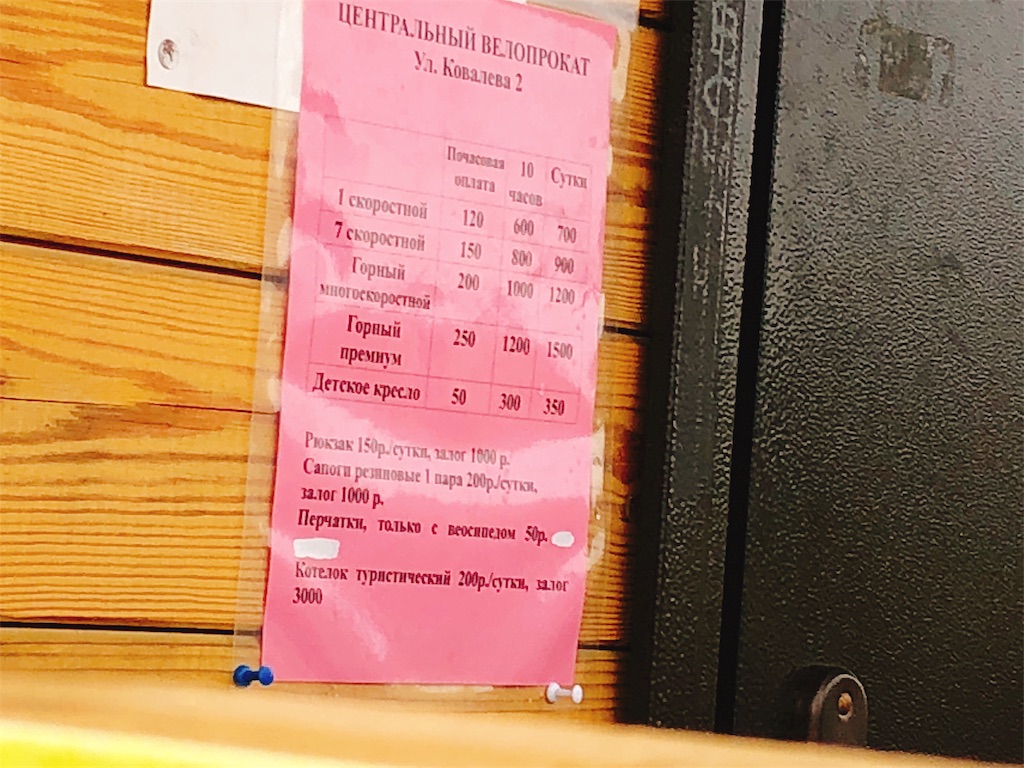 ЦЕНТРАЛЬНЫЙ ВЕЛОПРОКАТ
Ул. Ковалева 2
Почасовая оплата 10 часов Сутки
1 скоростной 120 600 700
7 скоростной 150 800 900
Горный многоскоростной 200 1000 1200
Горный премиум 250 1200 1500
Детское кресло 50 300 350
Рюкзак 150р./сутки, залог 1000 р.
Сапоги резиновые 1 пара 200р./сутки,
залог 1000 р.
Перчатки, только с веосипедом 50р.
Котелок туристический 200р./сутки, залог
3000